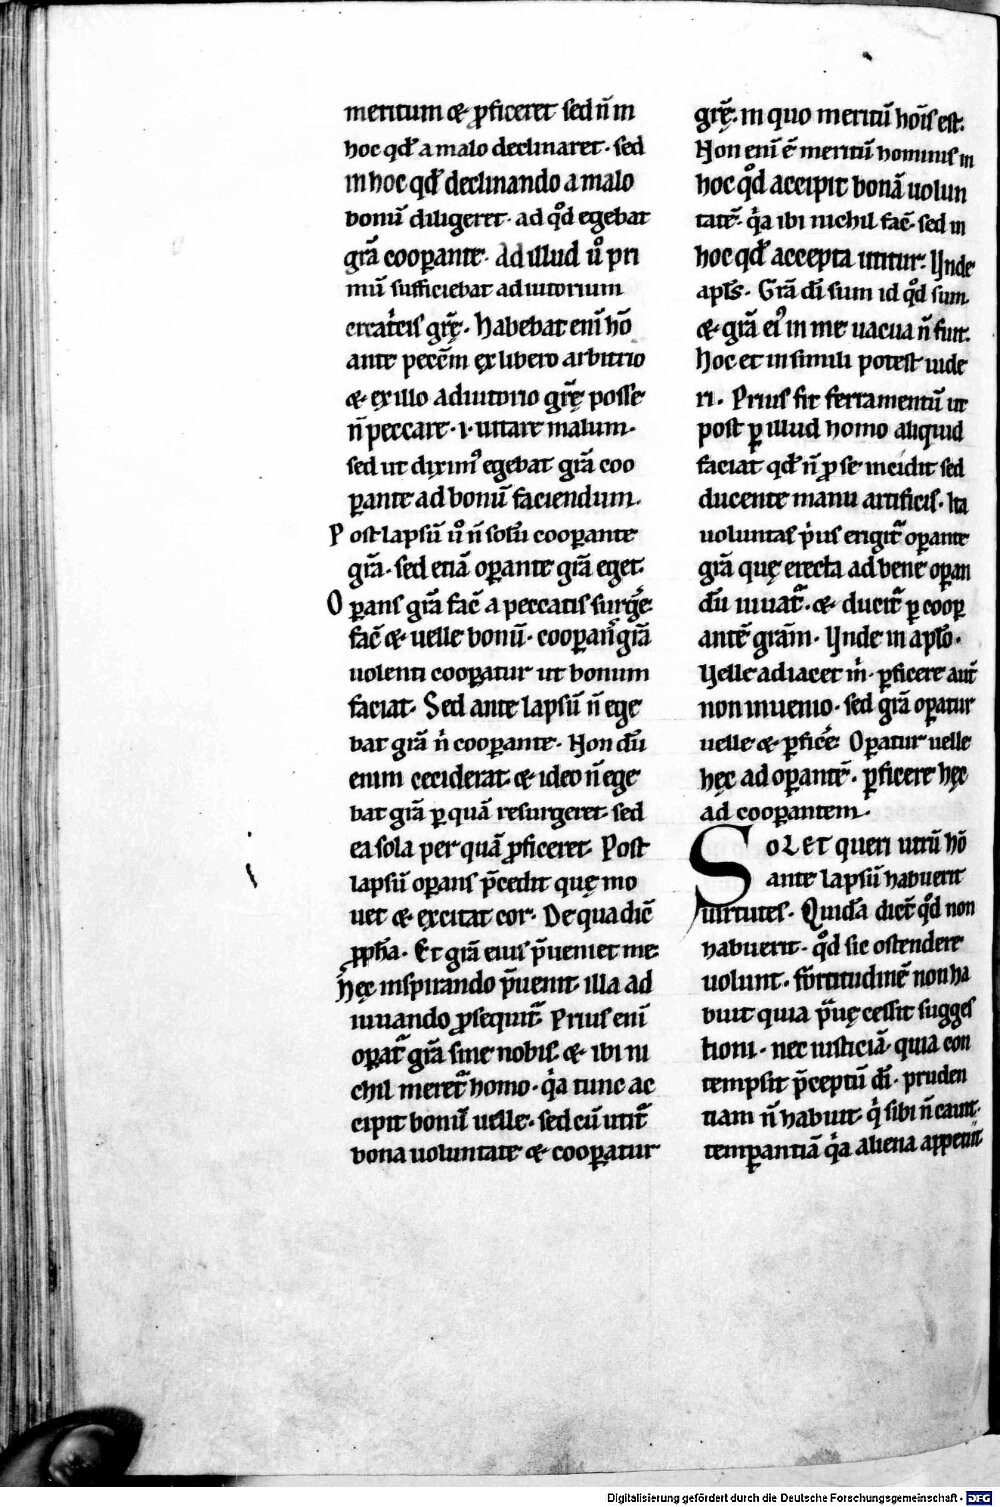 meritum & ꝓficeret sed n̄ in
hoc qd̛ a malo declinaret· sed
in hoc qd̛ declinando a malo
bonū diligeret· ad qͦd egebat
grā cooꝑante· ad illud uͦ pri
mū sufficiebat adiutorium
creatͥcis grę̄· Habebat enī hō
ante pecc̄m ex libero arbitrio
& ex illo adiutorio grę̄ posse
n̄ peccare· ·i· uitare malum·
sed ut diximꝰ egebat grā coo
ꝑante ad bonū faciendum·
Post lapsū uͦ n̄ solū cooꝑante
grā· sed etiā oꝑante grā eget·
Oꝑans grā fac̄ a peccatis surgē·
fac̄ & uelle bonū· cooꝑan̄ grā
uolenti cooꝑatur ut bonum
faciat· Sed ante lapsū n̄ ege
bat grā n̄ cooꝑante· Non dū
enim ceciderat· & ideo n̄ ege
bat grā ꝑ quā resurgeret· sed
ea sola per quā ꝓficeret· Post
lapsū oꝑans p̄cedit quę mo
uet & excitat cor· De qua dic̄
ꝓph̄a· Et grā eius p̄ueniet me·
hęc inspirando p̄uenit· illa ad
iuuando ꝓsequit᷑· Prius enī
oꝑat᷑ grā sine nobis· & ibi ni
chil meret᷑ homo· qͥa tunc ac
cipit bonū uelle· sed cū utit᷑
bona uoluntate & cooꝑatur
grę̄· in quo meritū hōis est·
Non enī ē meritū hominis in
hoc qͦd accipit bonā uolun
tatē· qͥa ibi nichil fac̄· sed in
hoc qd̛ accepta utitur· Unde
apl̄s· Grā dī sum id qͦd sum·
& grā eiꝰ in me uacua n̄ fuit·
Hoc et in simili potest uide
ri· Prius fit ferramentū ut
post ꝑ illud homo aliquid
faciat qd̛ n̄ ꝓ se incidit sed
ducente manu artificis· Ita
uoluntas pͥus erigit᷑ oꝑante
grā quę erecta ad bene oꝑan
dū iuuat᷑· & ducit᷑ ꝑ cooꝑ
antē grām· Unde in apl̄o·
Uelle adiacet m̄· ꝑficere aut̄
non inuenio· sed grā oꝑatur
uelle & ꝑficē· Oꝑatur uelle
hęc ad oꝑantē· ꝑficere hęc
ad cooꝑantem·
Solet queri utrū hō
ante lapsū habuerit
uirtutes· Quidā dic̄t qͦd non
habuerit· qͦd sic ostendere
uolunt· fortitudinē non ha
buit quia p̄uę cessit sugges
tioni· nec iusticiā· quia con
tempsit p̄ceptū dī· pruden
tiam n̄ habuit· qͥ sibi n̄ cauit·
temꝑantiā qͥa aliena appetiit
Digitalisierung gefördert durch die Deutsche Forschungsgemeinschaft - DFG